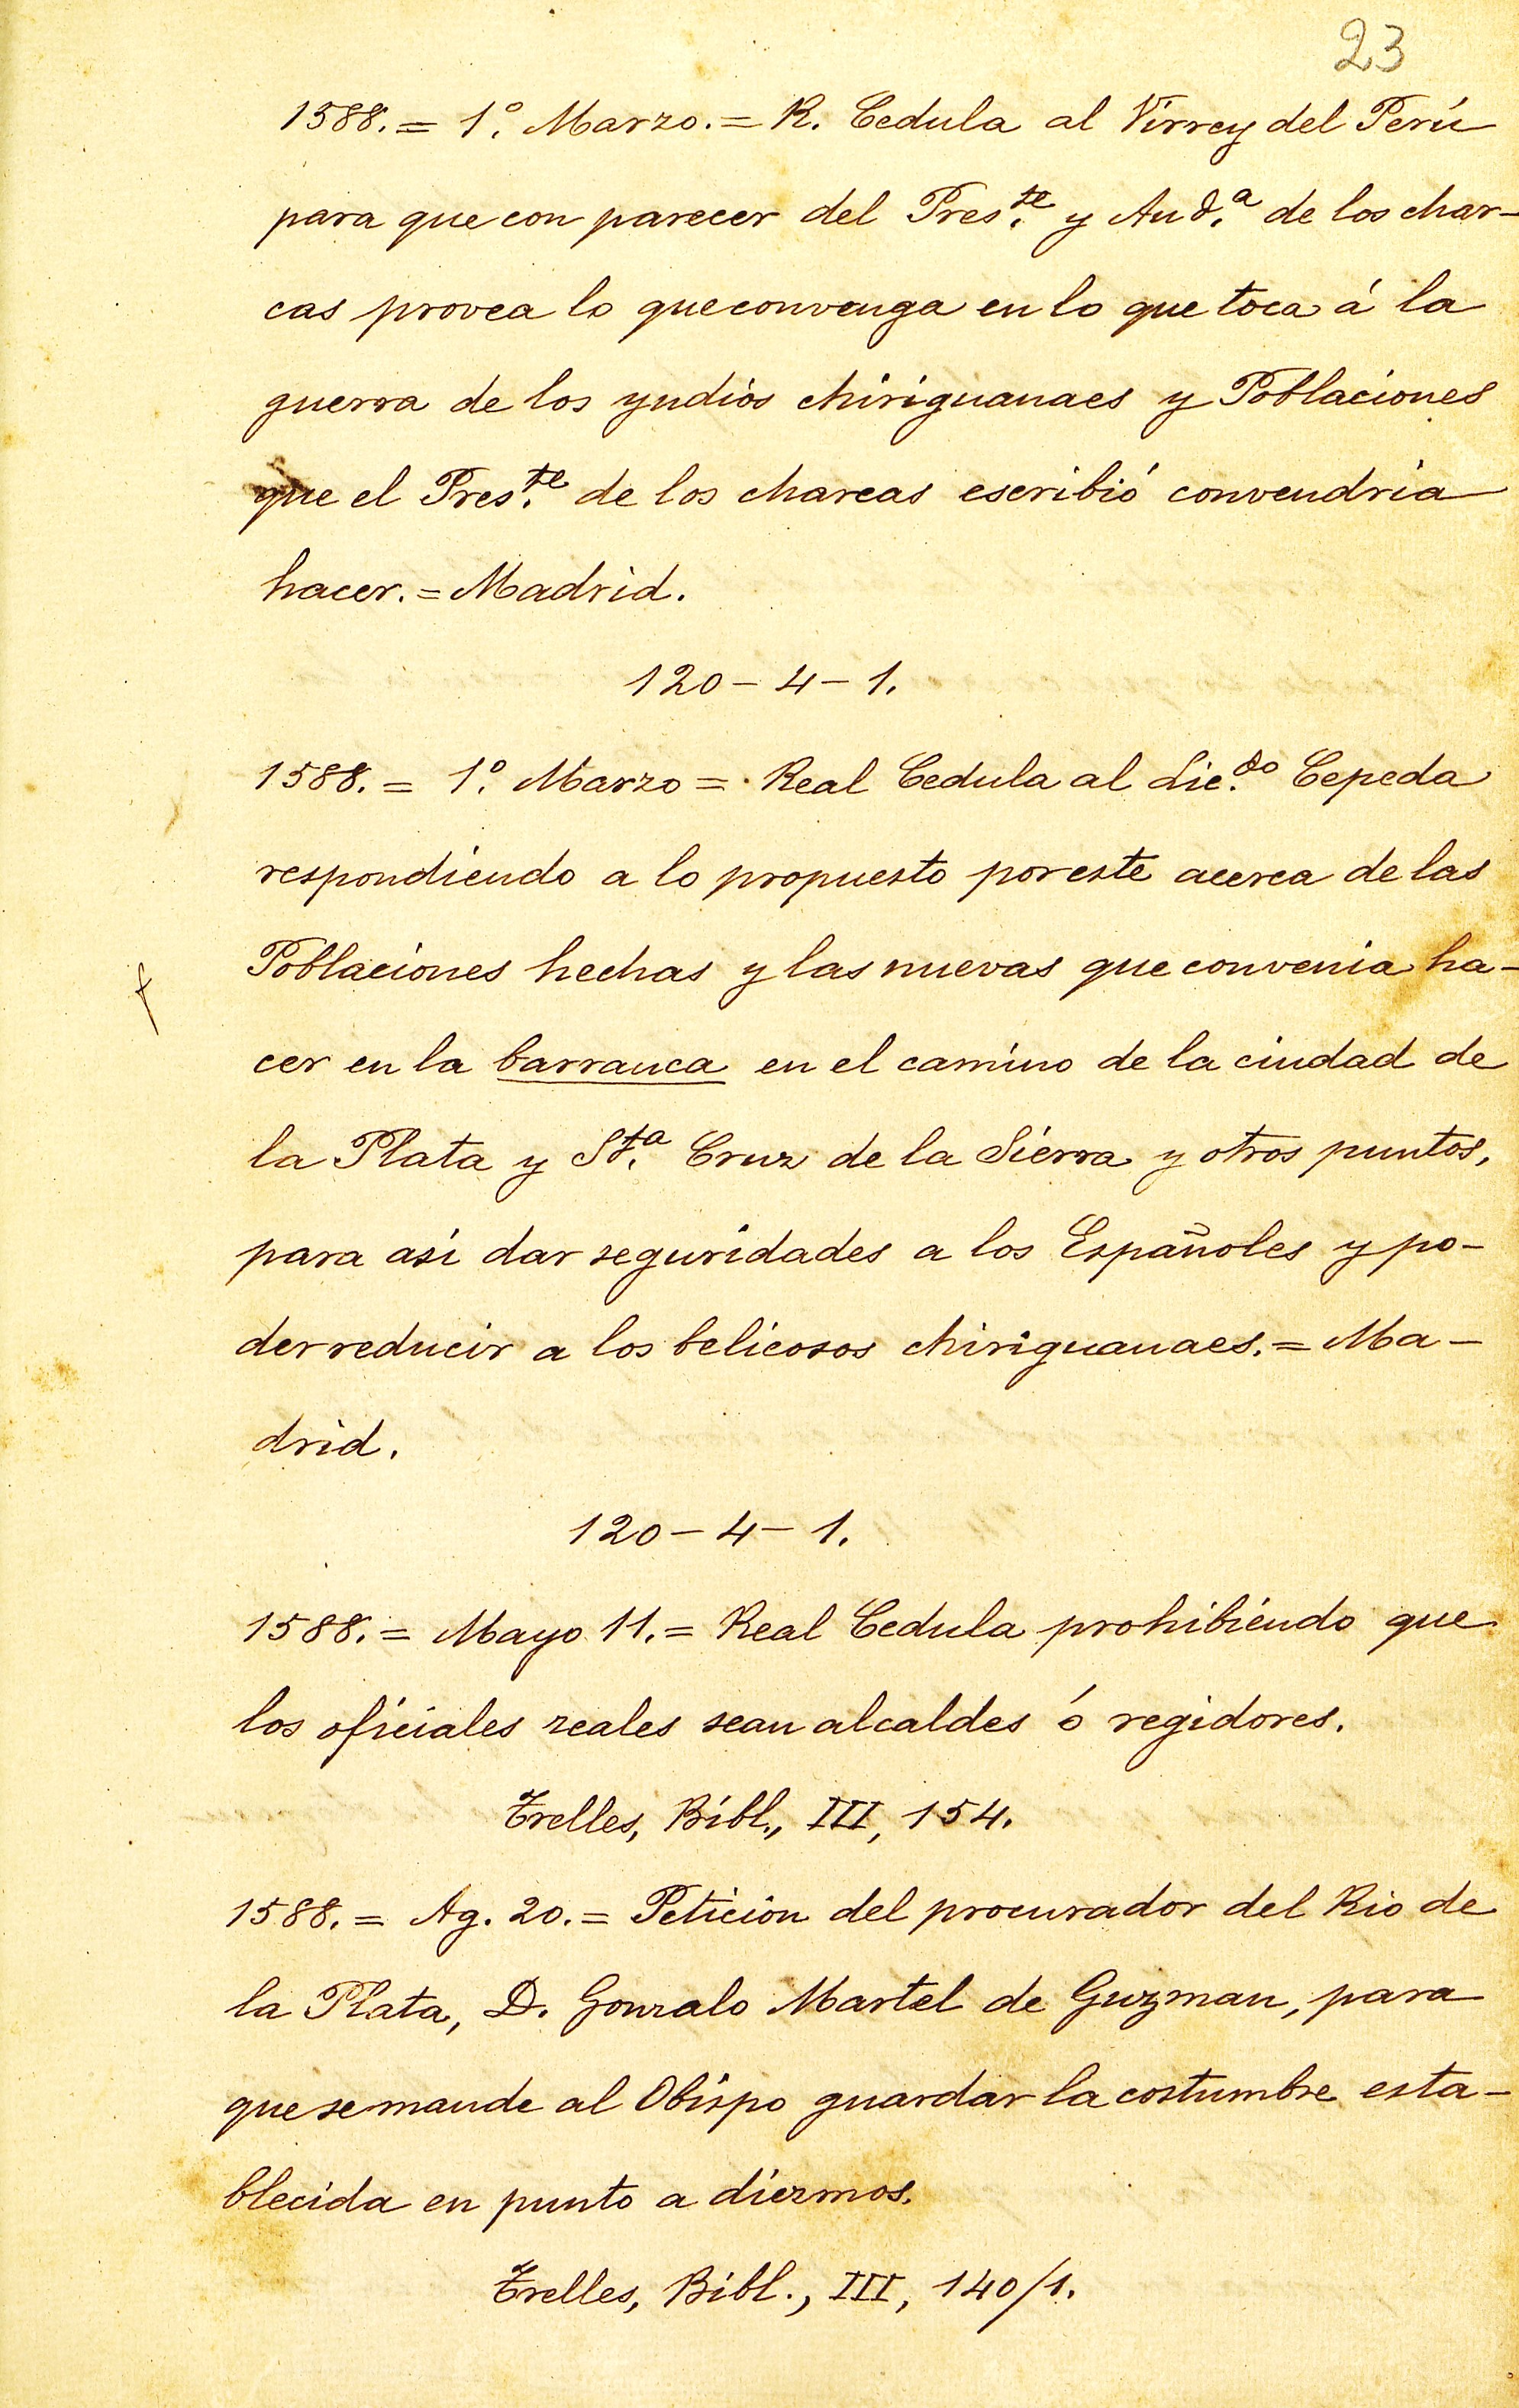 23
1588. = 1.º Marzo. = R. Cedula al Virrey del Perú
para que con parecer del Pres.te y Aud.a de los char-
cas provea lo que convenga en lo que toca á la
guerra de los yndios chiriguanaes y Poblaciones
que el Pres.te de los charcas escribió convendria
hacer. = Madrid.
120-4-1.
1588. = 1.º Marzo = Real Cedula al Lic.do Cepeda
respondiendo a lo propuesto por este acerca de las
Poblaciones hechas y las nuevas que convenia ha-
cer en la barranca en el camino de la ciudad de
la Plata y St.a Cruz de la Sierra y otros puntos,
para asi dar seguridades a los Españoles y po-
der reducir a los belicosos chiriguanaes. = Ma-
drid.
120-4-1.
1588. = Mayo 11. = Real Cedula prohibiendo que
los oficiales reales sean alcaldes ó regidores.
Trelles, Bibl., III, 154.
1588. = Ag. 20. = Peticion del procurador del Rio de
la Plata, D. Gonzalo Martel de Guzman, para
que se mande al Obispo guardar la costumbre esta-
blecida en punto a diezmos.
Trelles, Bibl., III, 140/1.